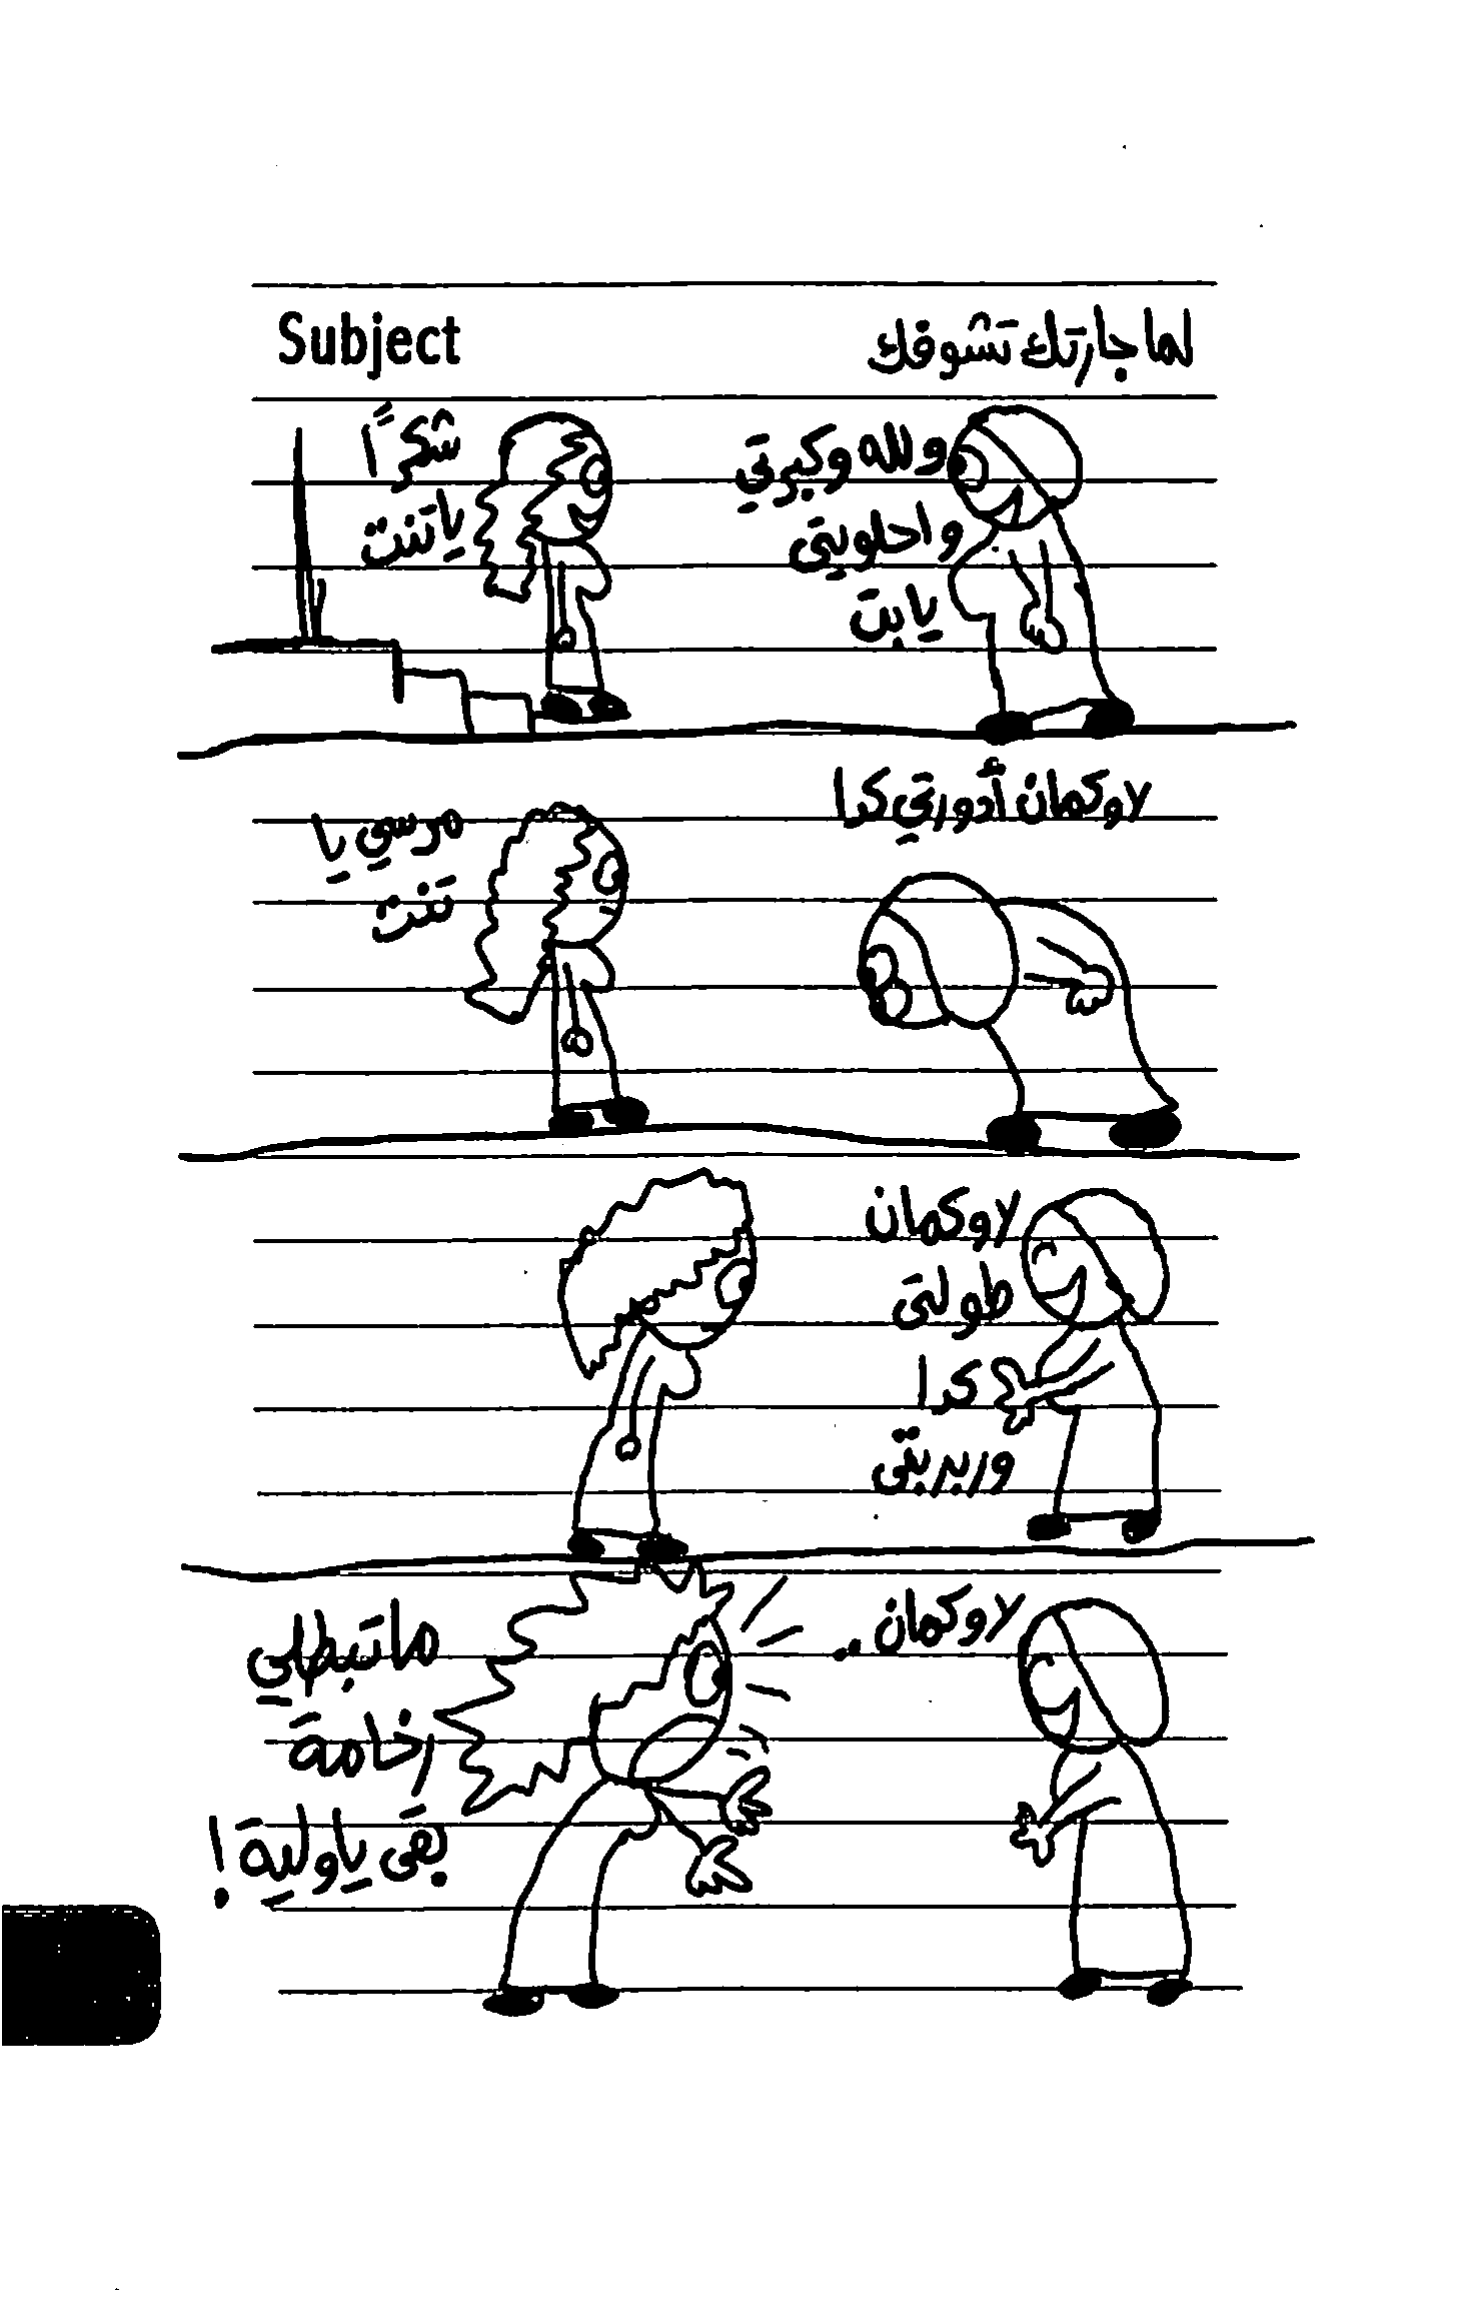 لما جارتك تشوفك
Subject
ولله وكبرتي
واحلويتى
يابت
شكرًا
ياتنت
لا وكمان أدورتي كدا
مرسي يا
تنت
لا وكمان
طولتى
كدا
وربربتى
لا وكمان..
ماتبطلي
رخامة
بقى ياولية!